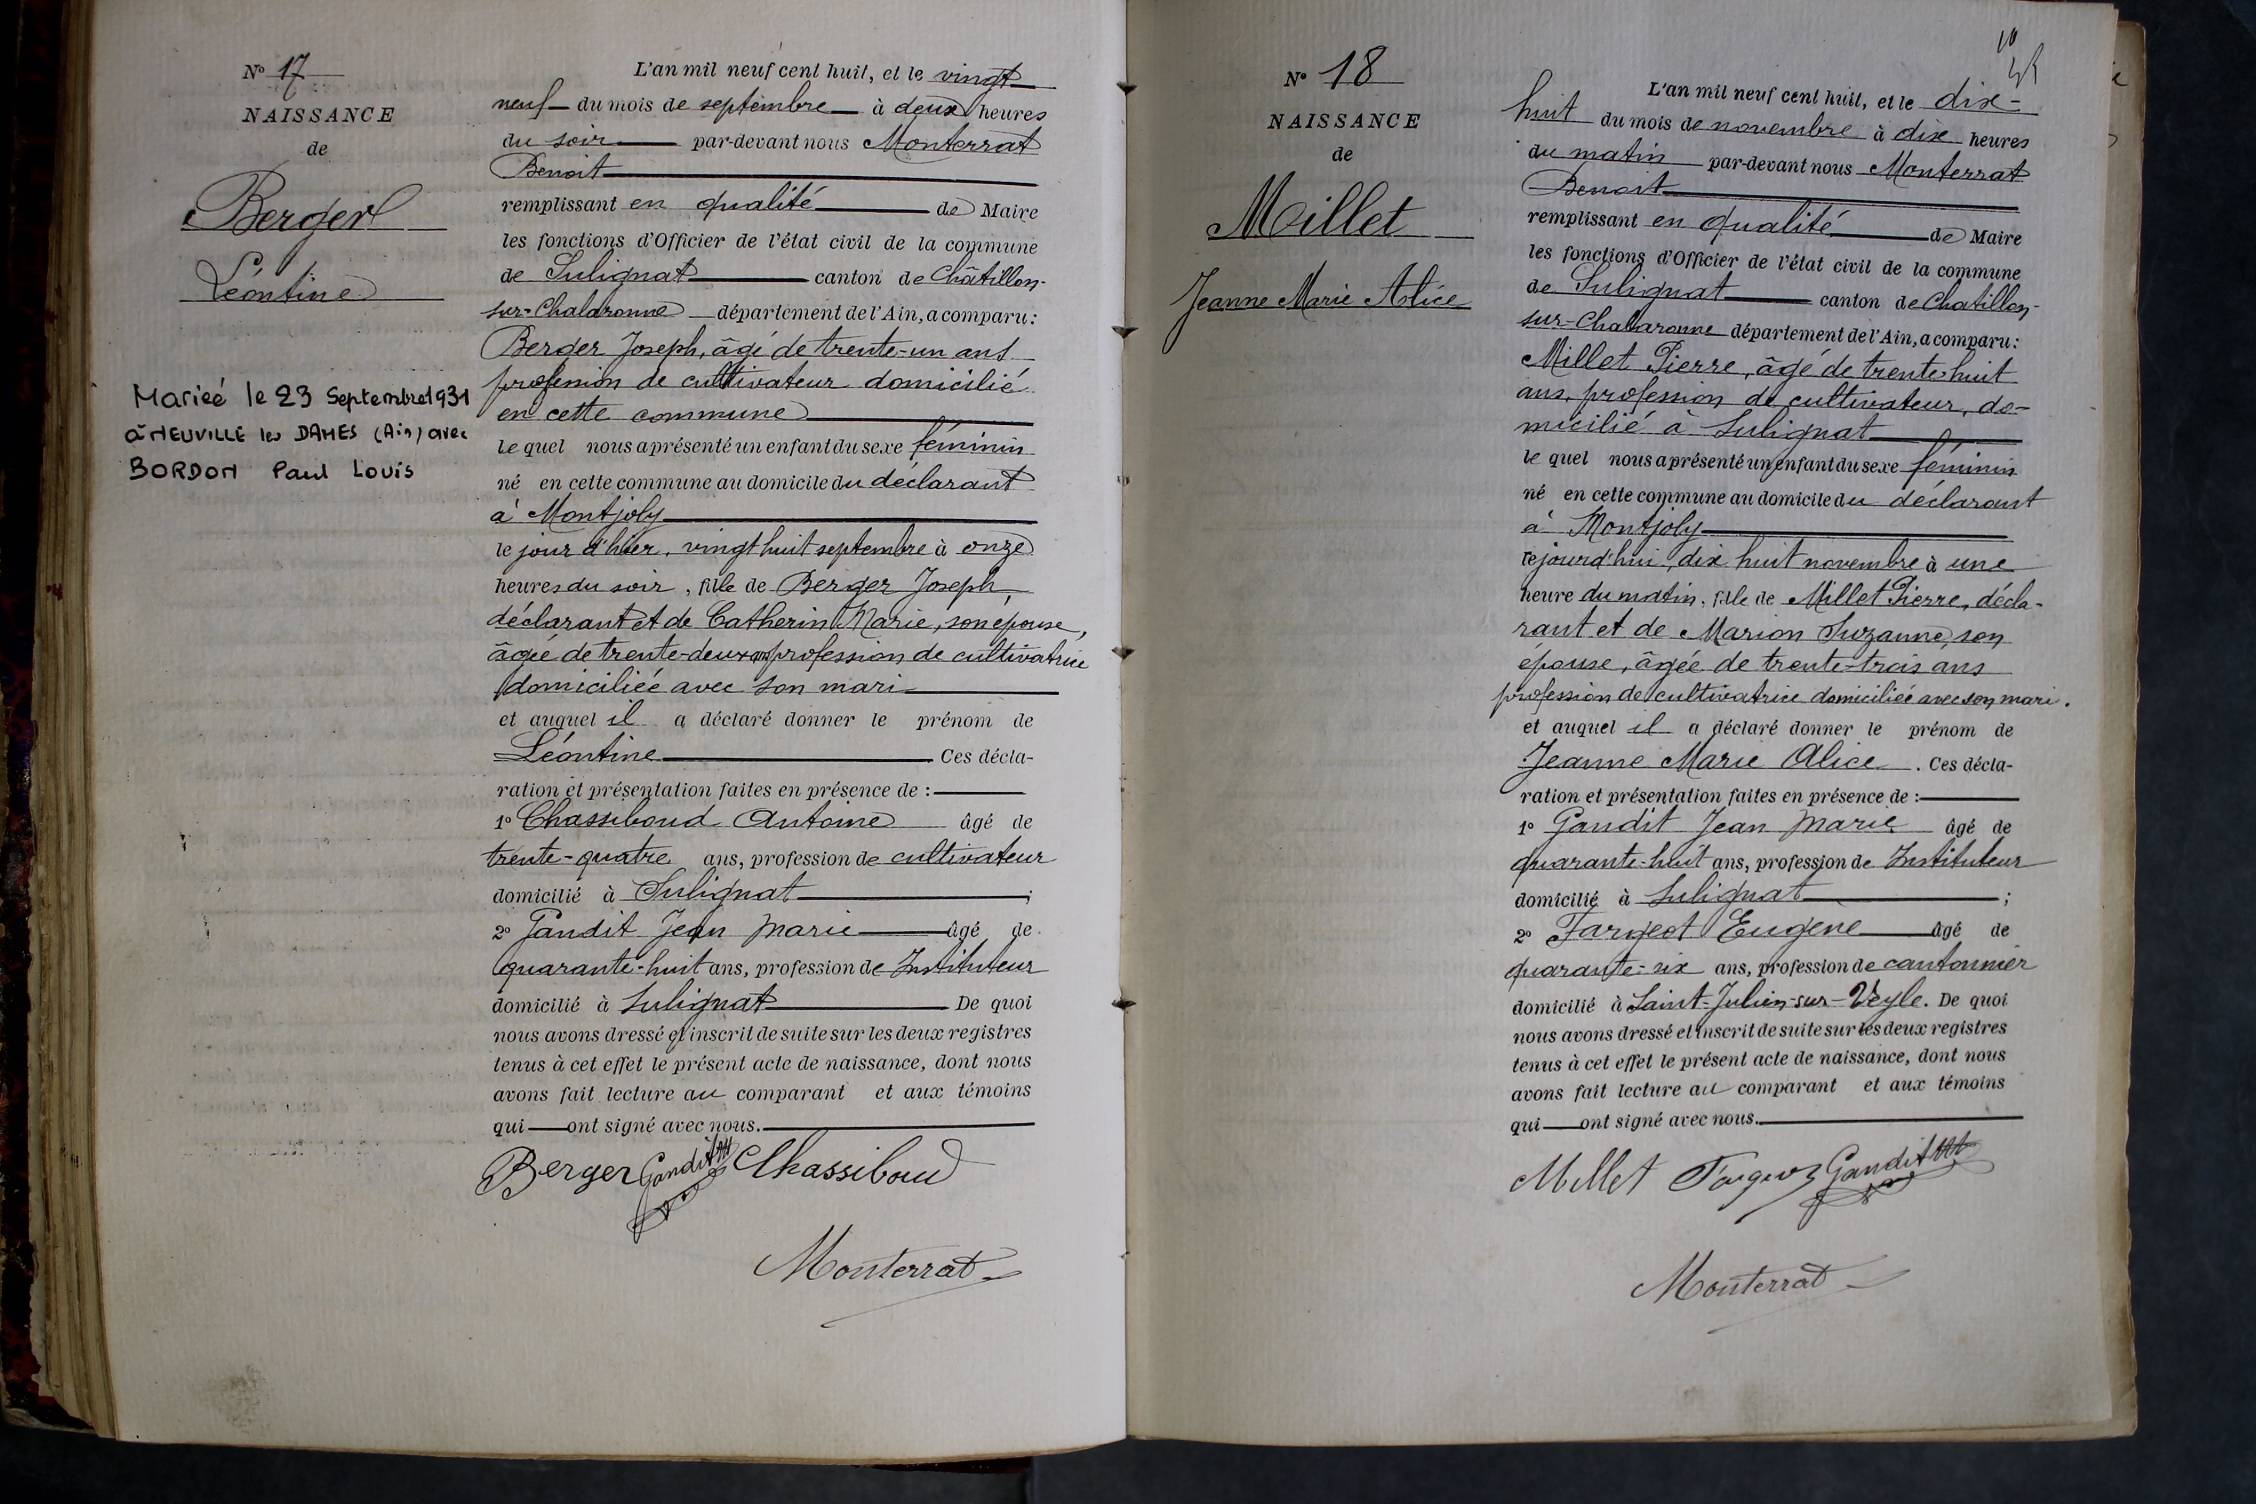 N° 17
NAISSANCE
de
Berger
Léontine
Mariée le 23 Septembre 1931
à NEUVILLE les DAMES (Ain) avec
BORDON Paul Louis
L'an mil neuf cent huit, et le vingt
neuf du mois de septembre à deux heures
du soir par-devant nous Monterrat
Benoit
remplissant en qualité de Maire
les fonctions d'Officier de l'état civil de la commune
de Sulignat canton de Châtillon-
sur-Chalaronne département de l'Ain, a comparu:
Berger Joseph, âgé de trente-un ans
profession de cultivateur domicilié
en cette commune
le quel nous a présenté un enfant du sexe féminin
né en cette commune au domicile du déclarant
à Montjoly
le jour d'hier, vingt huit septembre à onze
heures du soir, fille de Berger Joseph,
déclarant et de Catherin Marie, son épouse,
âgée de trente-deux ans profession de cultivatrice
domiciliée avec son mari
et auquel il a déclaré donner le prénom de
Léontine Ces décla-
ration et présentation faites en présence de :
1° Chassiboud Antoine âgé de
trente-quatre ans, profession de cultivateur
domicilié à Sulignat ;
2° Gandit Jean Marie âgé de
quarante-huit ans, profession de Instituteur
domicilié à Sulignat De quoi
nous avons dressé et inscrit de suite sur les deux registres
tenus à cet effet le présent acte de naissance, dont nous
avons fait lecture au comparant et aux témoins
qui ont signé avec nous.
Berger Gandit Chassiboud
Monterrat
N° 18
NAISSANCE
de
Millet
Jeanne Marie Alice
L'an mil neuf cent huit, et le dix-
huit du mois de novembre à dix heures
du matin par-devant nous Monterrat
Benoit
remplissant en qualité de Maire
les fonctions d'Officier de l'état civil de la commune
de Sulignat canton de Chatillon-
sur-Chalaronne département de l'Ain, a comparu:
Millet Pierre, âgé de trente huit
ans, profession de cultivateur, do-
micilié à Sulignat
le quel nous a présenté un enfant du sexe féminin
né en cette commune au domicile du déclarant
à Montjoly
cejourd'hui dix huit novembre à une
heure du matin, fille de Millet Pierre, décla-
rant et de Marion Suzanne, son
épouse, âgée de trente-trois ans
profession de cultivatrice domiciliée avec son mari.
et auquel il a déclaré donner le prénom de
Jeanne Marie Alice . Ces décla-
ration et présentation faites en présence de :
1° Gandit Jean Marie âgé de
quarante-huit ans, profession de Instituteur
domicilié à Sulignat ;
2° Fargeot Eugène âgé de
quarante-six ans, profession de cantonnier
domicilié à Saint-Julien-sur-Veyle. De quoi
nous avons dressé et inscrit de suite sur les deux registres
tenus à cet effet le présent acte de naissance, dont nous
avons fait lecture au comparant et aux témoins
qui ont signé avec nous.
Millet Fargeot Gandit
Monterrat